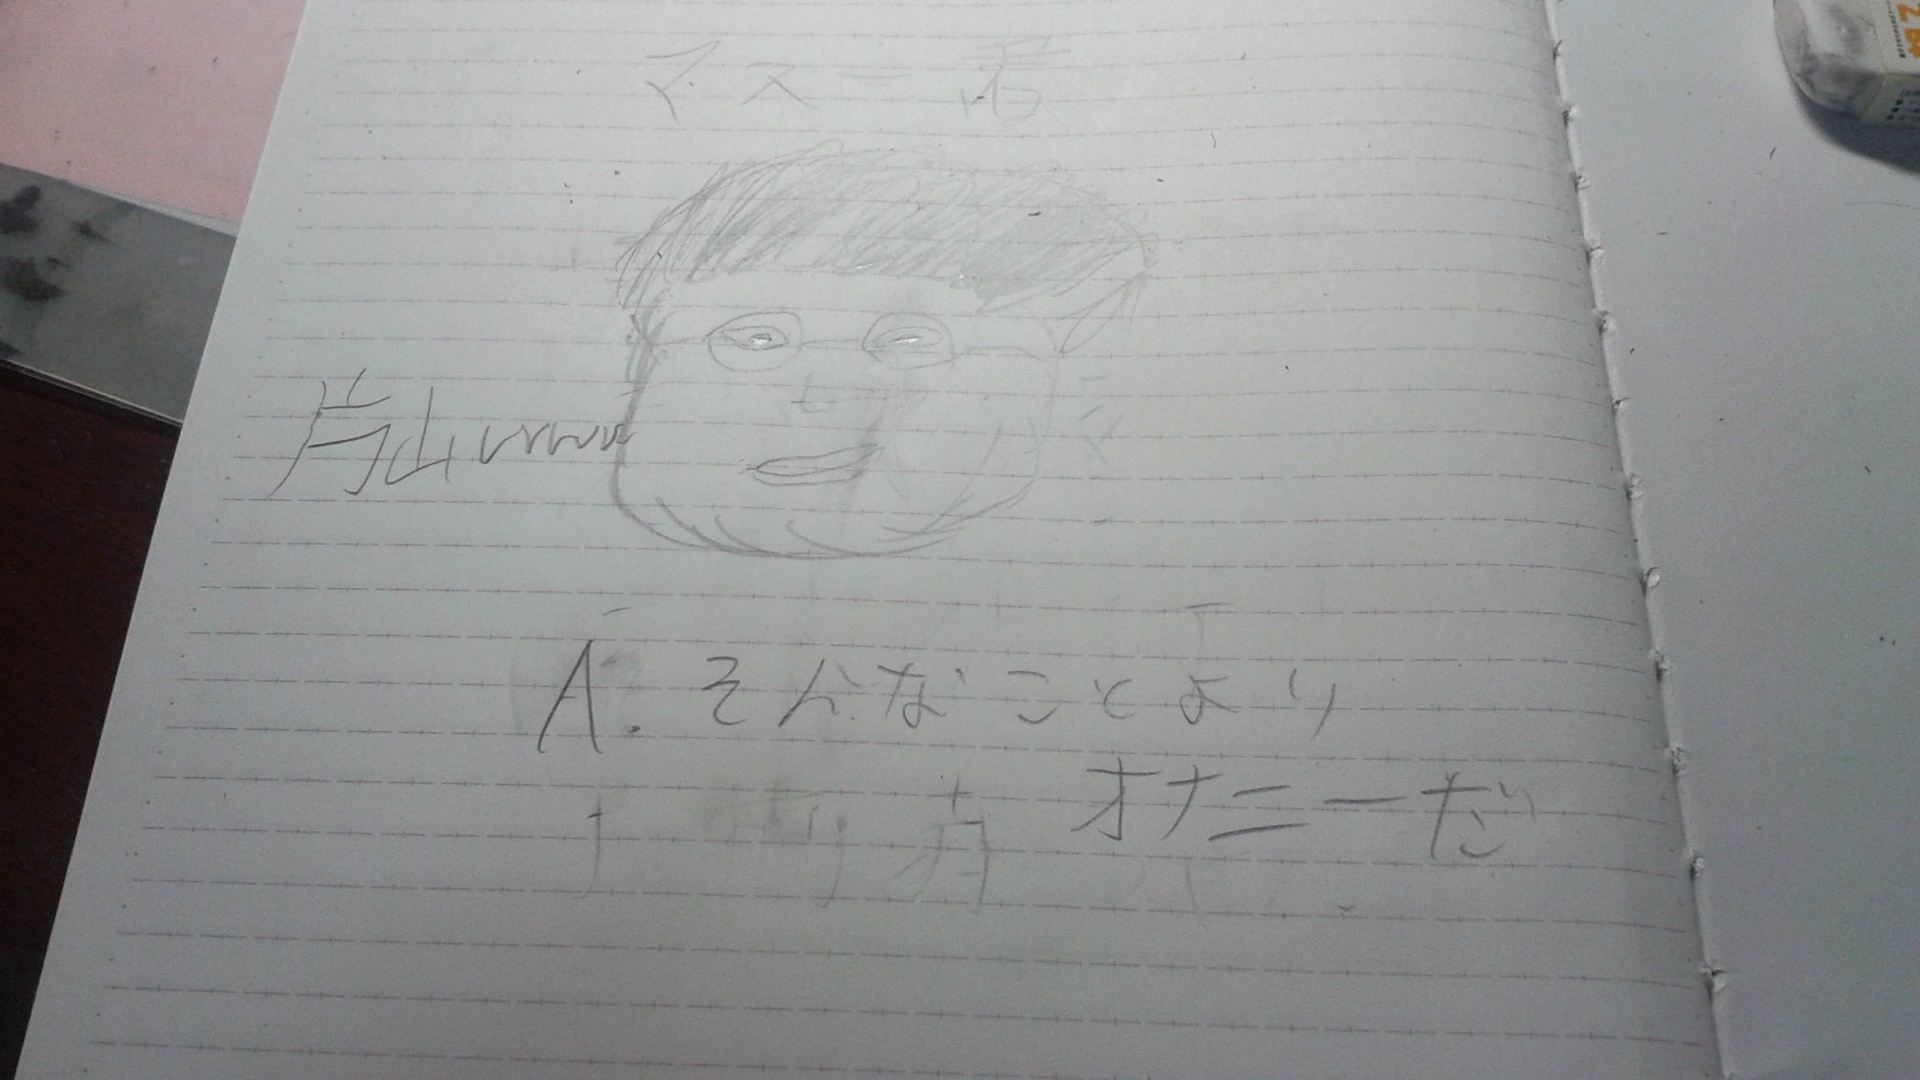 マスー君
片山wwww
A. そんなことより
オナニーだ